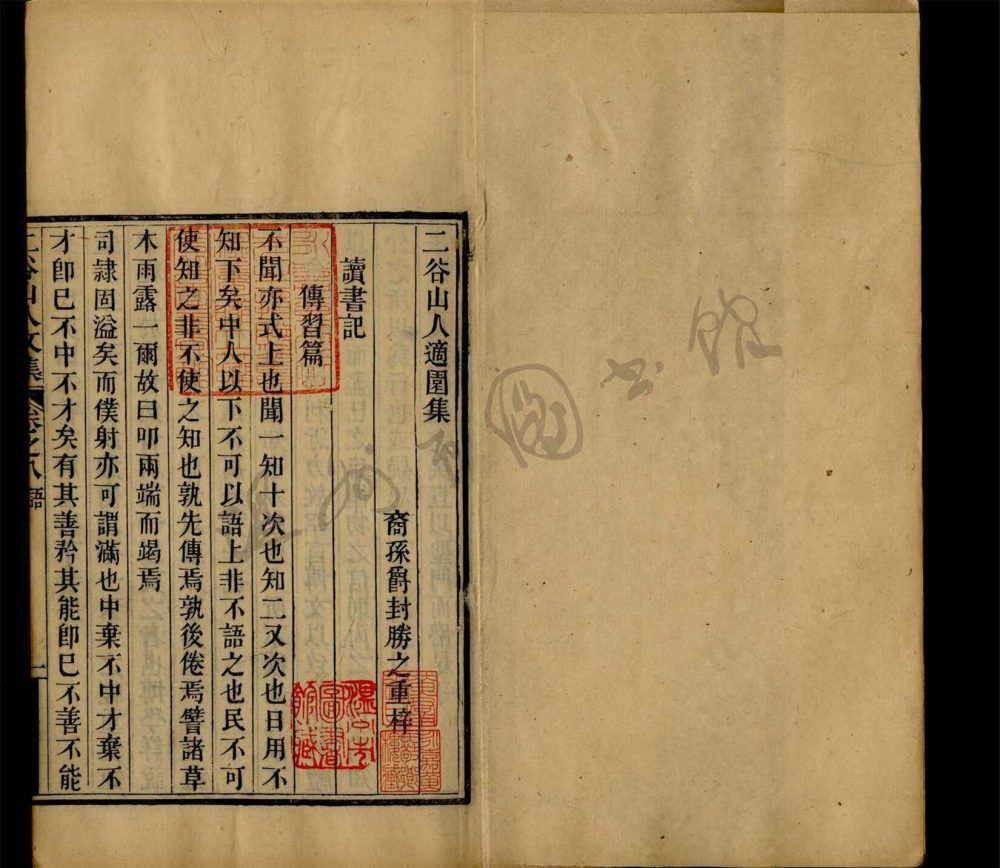 二谷山人適園集
裔孫爵封勝之重梓
讀書記
傳習篇
不聞亦式上也聞一知十次也知二又次也日用不
知下矣中人以下不可以語上非不語之也民不可
使知之非不使之知也孰先傳焉孰後倦焉譬諸草
木雨露一爾故曰叩兩端而竭焉
司隷固溢矣而僕射亦可謂滿也中棄不中才棄不
才卽已不中不才矣有其善矜其能卽已不善不能
二谷山人文集 卷之八 語 一
溫州市圖書館藏
圖書館